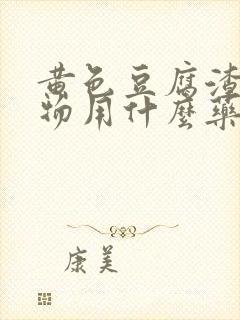 黄色豆腐渣
物用什麼藥
康美